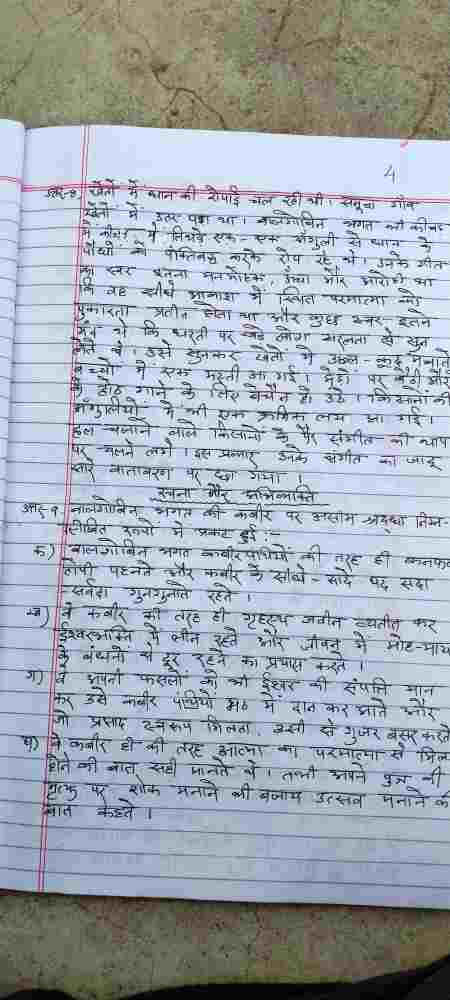 4
उत्तर-8. खेतों में धान की रोपाई चल रही थी। समूचा गाँव
खेतों में उतर पड़ा था। बालगोबिन भगत भी कीचड़
में लिथड़े एक-एक अंगुली से धान के
पौधों को पंक्तिबद्ध करके रोप रहे थे। उनके गीत
का स्वर इतना मनमोहक, ऊँचा और आरोही था
कि वह सीधे आकाश में स्थित परमात्मा को
पुकारता प्रतीत होता था और कुछ स्वर इतने
थे कि धरती पर खड़े लोग सरलता से सुन
लेते थे। उसे सुनकर खेतों में उछल-कूद मचाते
बच्चों में एक मस्ती आ गई। मेंड़ों पर बैठी औरतों
के होंठ गाने के लिए बेचैन हो उठे। किसानों की
अँगुलियों में भी एक क्रमिक लय आ गई।
हल चलाने वाले किसानों के पैर संगीत की थाप
पर चलने लगे। इस प्रकार उनके संगीत का जादू
सारे वातावरण पर छा गया।
रचना और अभिव्यक्ति
उत्तर 9. बालगोबिन भगत की कबीर पर असीम श्रद्धा निम्न-
लिखित रूपों में प्रकट हुई :-
क) बालगोबिन भगत कबीरपंथियों की तरह ही कनफटी
टोपी पहनते और कबीर के सीधे-सादे पद सदा
सर्वदा गुनगुनाते रहते।
ख) वे कबीर की तरह ही गृहस्थ जीवन व्यतीत कर
ईश्वरभक्ति में लीन रहते और जीवन में मोह-माया
के बंधनों से दूर रहने का प्रयास करते।
ग) वे अपनी फसलों को भी ईश्वर की संपत्ति मान
कर उसे कबीर पंथियों मठ में दान कर आते और
जो प्रसाद स्वरूप मिलता, उसी से गुजर बसर करते
घ) वे कबीर ही की तरह आत्मा का परमात्मा से मिल
होने की बात सही मानते थे। तभी अपने पुत्र की
मृत्यु पर शोक मनाने की बजाय उत्सव मनाने की
बात कहते।